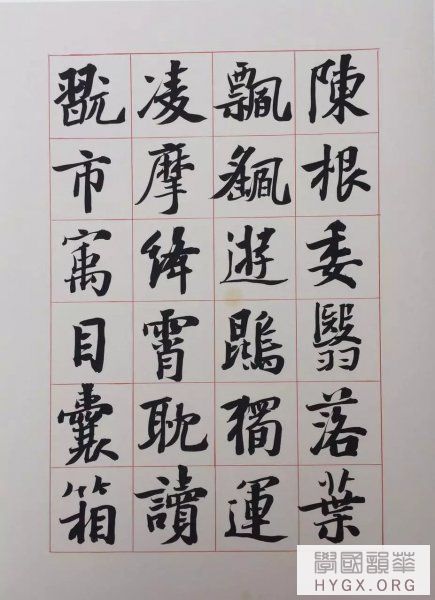 陳根委翳落葉
飄颻遊鵾獨運
凌摩絳霄耽讀
翫市寓目囊箱
學國韻華
HYGX.ORG